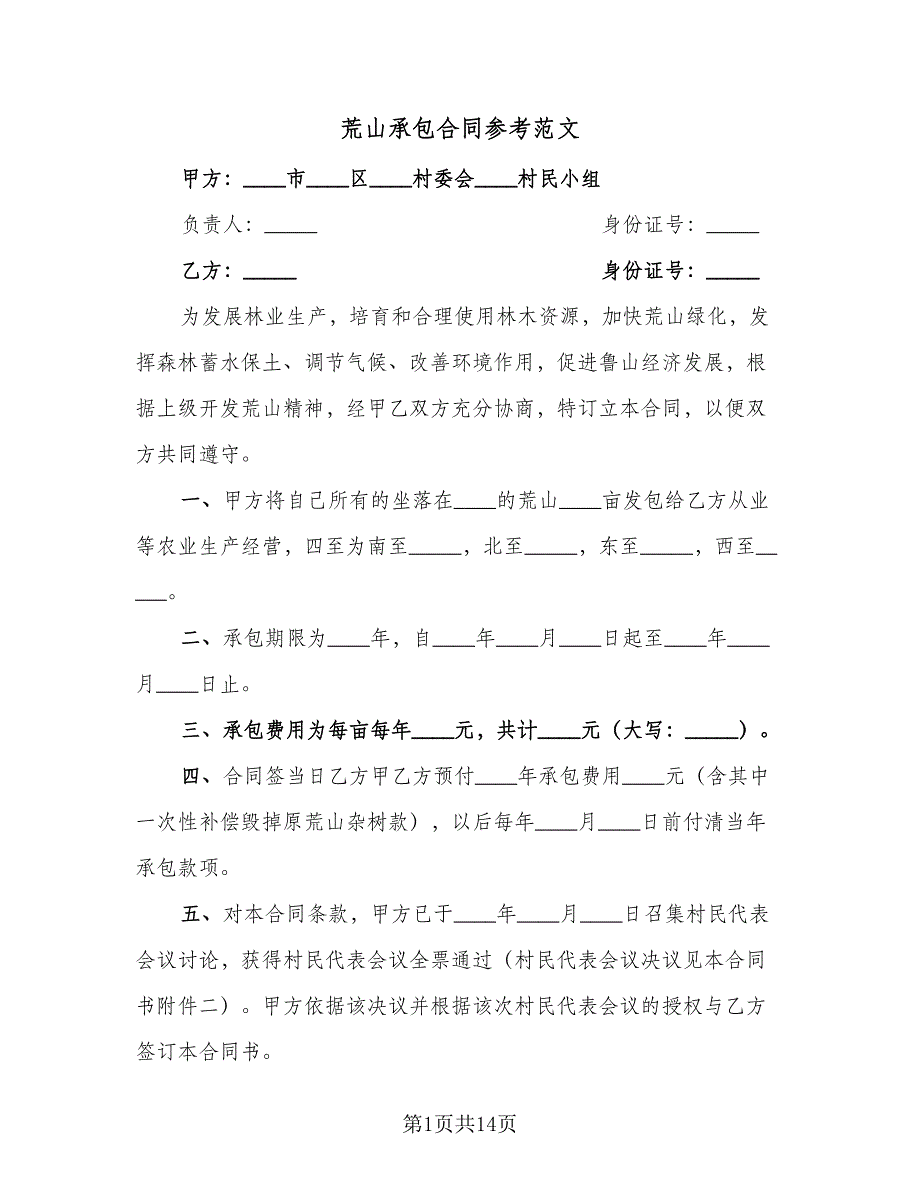 荒山承包合同参考范文
甲方：____市____区____村委会____村民小组
负责人：_____ 身份证号：_____
乙方：_____ 身份证号：_____
为发展林业生产，培育和合理使用林木资源，加快荒山绿化，发
挥森林蓄水保土、调节气候、改善环境作用，促进鲁山经济发展，根
据上级开发荒山精神，经甲乙双方充分协商，特订立本合同，以便双
方共同遵守。
一、甲方将自己所有的坐落在____的荒山____亩发包给乙方从业
等农业生产经营，四至为南至_____，北至_____，东至_____，西至__
___。
二、承包期限为____年，自____年____月____日起至____年____
月____日止。
三、承包费用为每亩每年____元，共计____元（大写：_____）。
四、合同签当日乙方甲乙方预付____年承包费用____元（含其中
一次性补偿毁掉原荒山杂树款），以后每年____月____日前付清当年
承包款项。
五、对本合同条款，甲方已于____年____月____日召集村民代表
会议讨论，获得村民代表会议全票通过（村民代表会议决议见本合同
书附件二）。甲方依据该决议并根据该次村民代表会议的授权与乙方
签订本合同书。
第1页共14页